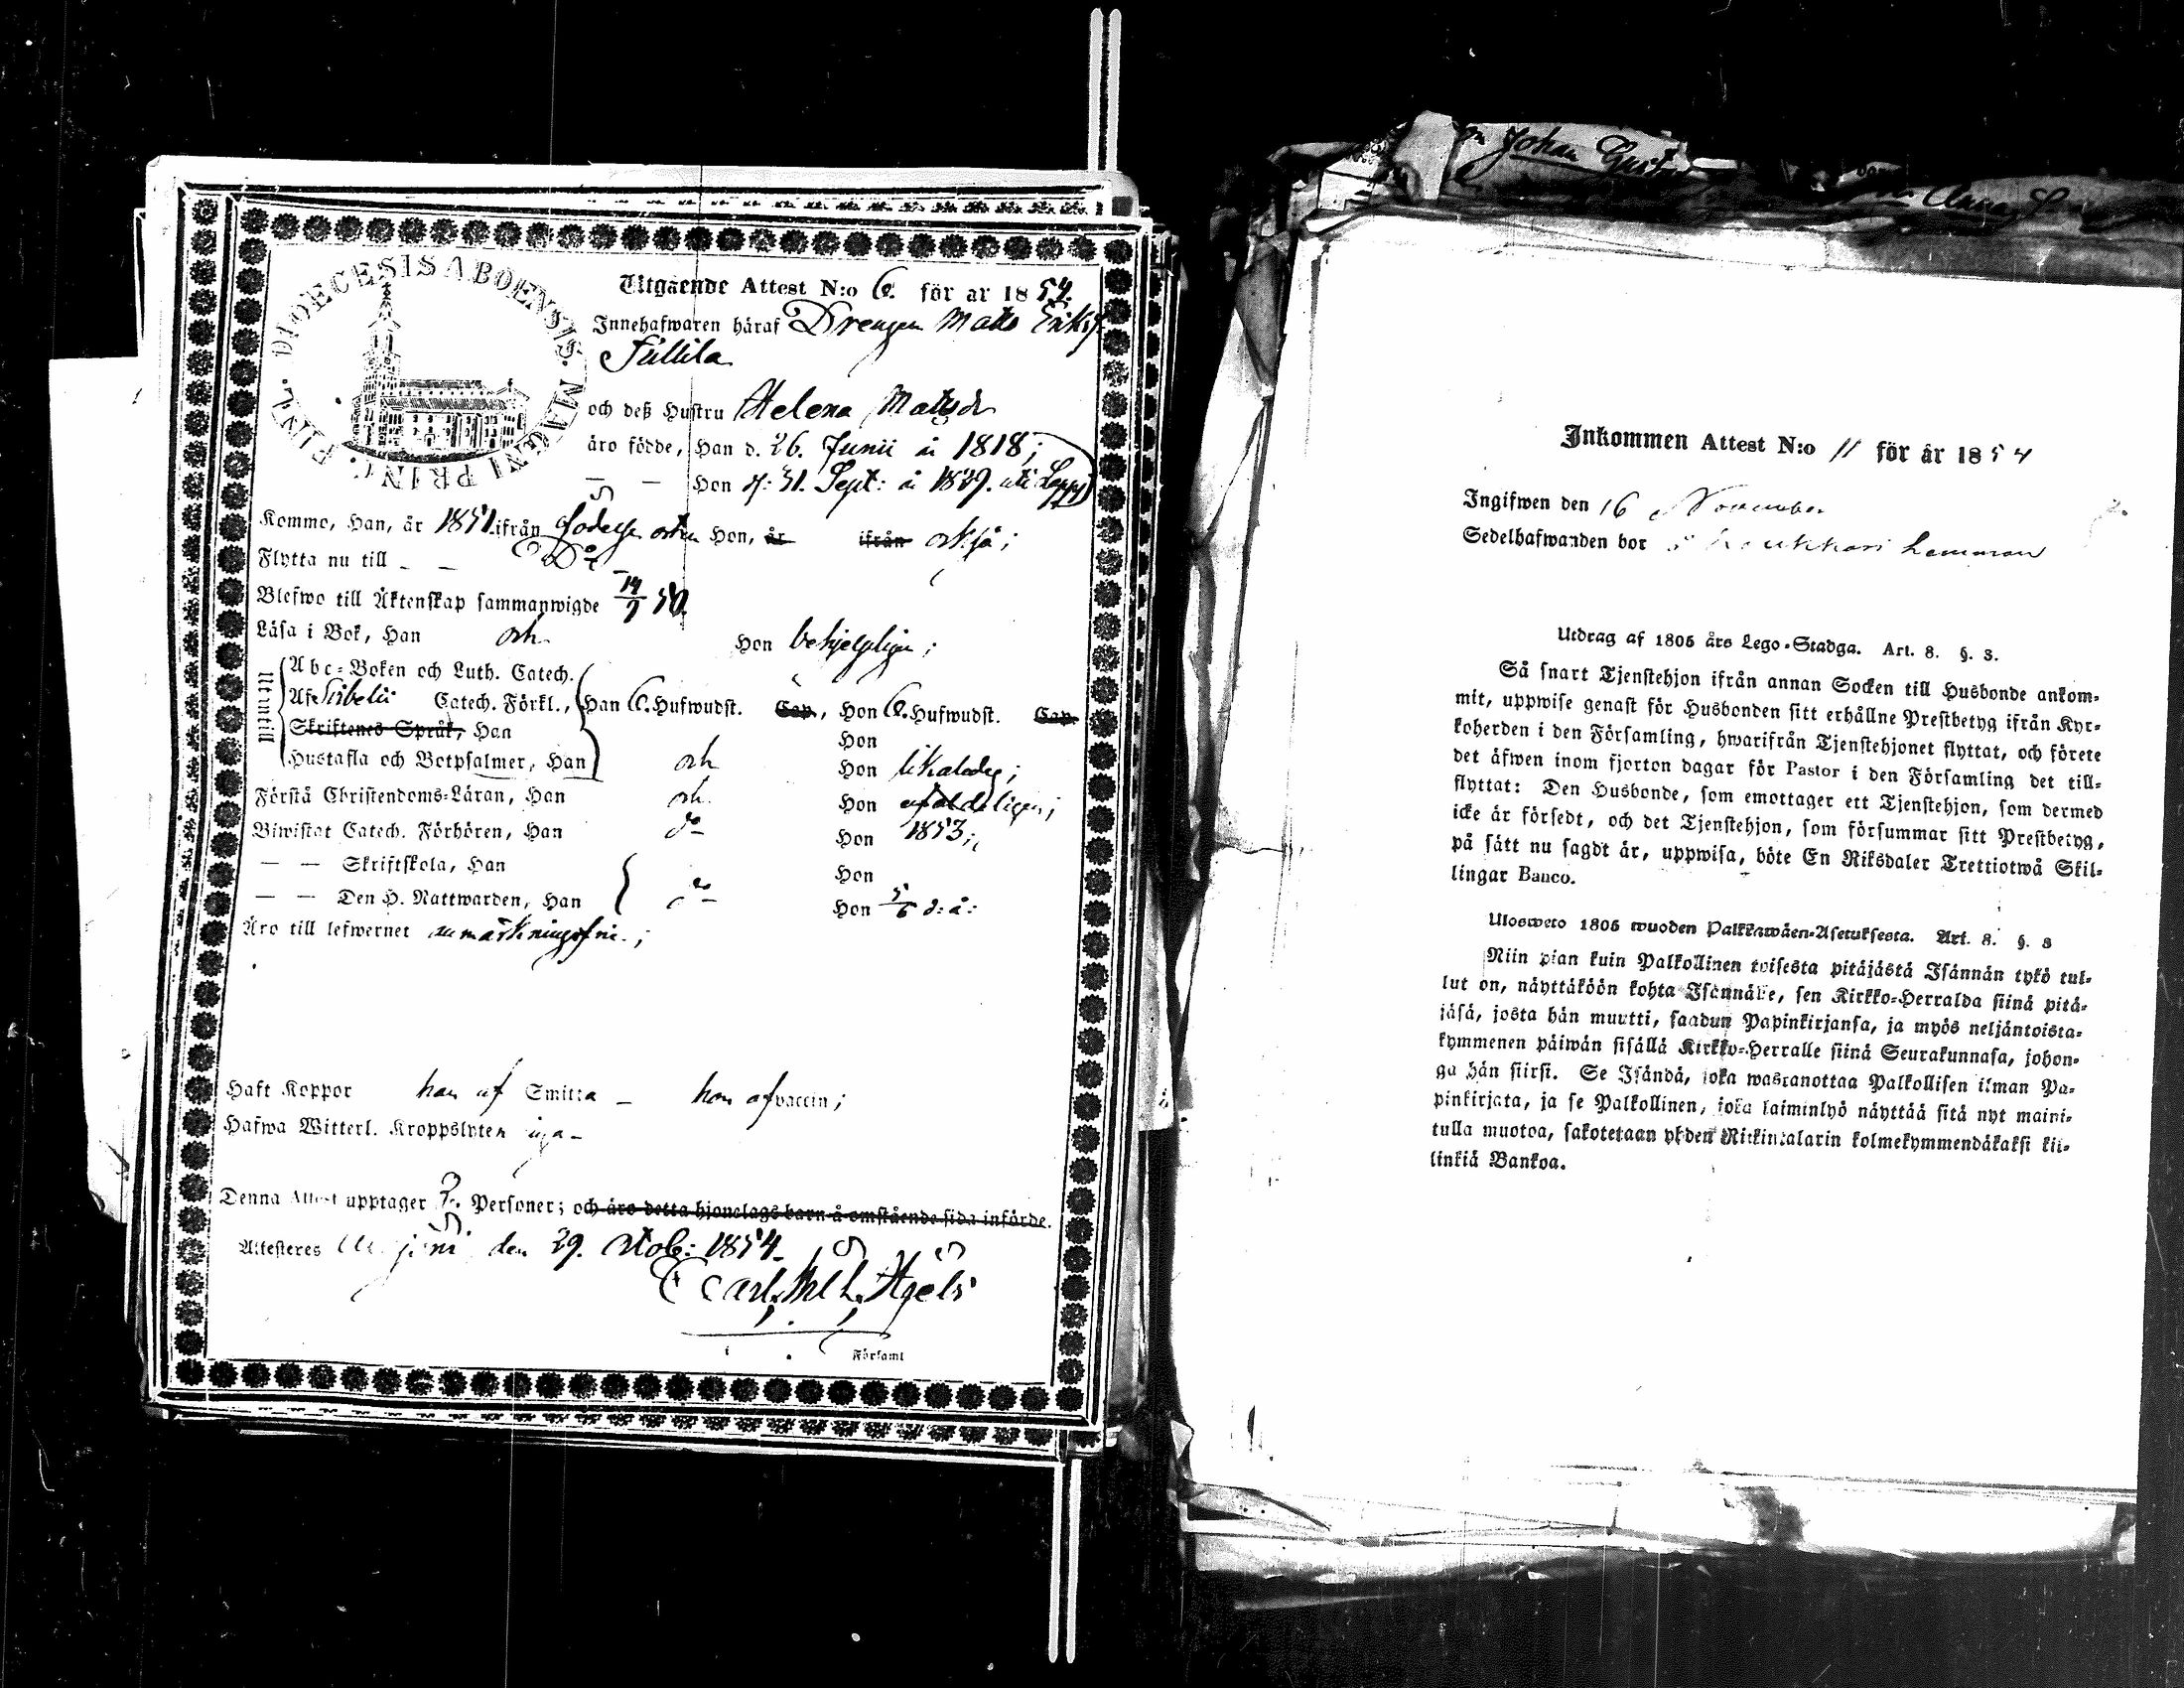 DIOECESIS ABOENSIS. MAGNI PRINC. FINL.
Utgående Attest N:o 6. för år 1854.
Innehafwaren häraf Drengen Matts Eriksf.
och deß Hustru Helena Mattsdr
äro födde, Han d. 26. Junii år 1818;
— — Hon d: 31. Sept: år 1829. uti Lappo
Komme, Han, år 1851. ifrån och Hon, år ifrån också;
Flytta nu till — — Do
Blefwo till Äktenskap sammanwigde 14/9 50.
Läsa i Bok, Han och Hon behjelpligen;
Utantill
Abc-Boken och Luth. Catech.
Af Sibelii Catech. Förkl., Han 6. Hufwudst. Cap., Hon 6. Hufwudst. Cap.
Skriftenes Språk, Han Hon
Hustafla och Botpsalmer, Han och Hon likaledes;
Förstå Christendoms-Läran, Han och Hon
Biwistat Catech. Förhören, Han do Hon 1853;
— — Skriftskola, Han Hon
— — Den H. Nattwarden, Han do Hon 5/6 d: å:
Äro till lefwernet anmärkningsfrie.;
Haft Koppor han af Smitta — hon af vaccin;
Hafwa Witterl. Kroppslyten inga —
Denna Attest upptager 2. Personer; och äro detta hjonelags barn å omstående sida införde.
Attesteres den 29. Octob: 1854.
Carl Wilh.
Församl
Johan Gust
Anna
Inkommen Attest N:o 11 för år 1854
Ingifwen den 16 November
Sedelhafwanden bor i Loukkari hemman
Utdrag af 1805 års Lego-Stadga. Art. 8. §. 3.
Så snart Tjenstehjon ifrån annan Socken till Husbonde ankom-
mit, uppwise genast för Husbonden sitt erhållne Prestbetyg ifrån Kyr-
koherden i den Församling, hwarifrån Tjenstehjonet flyttat, och förete
det äfwen inom fjorton dagar för Pastor i den Församling det till-
flyttat: Den Husbonde, som emottager ett Tjenstehjon, som dermed
icke är försedt, och det Tjenstehjon, som försummar sitt Prestbetyg,
på sätt nu sagdt är, uppwisa, böte En Riksdaler Trettiotwå Skil-
lingar Banco.
Ulosweto 1805 wuoden Palkkawäen-Asetuksesta. Art. 8. §. 3
Niin pian kuin Palkollinen toisesta pitäjästä Isännän tykö tul-
lut on, näyttäköön kohta Isännälle, sen Kirkko-Herralda siinä pitä-
jäsä, josta hän muutti, saadun Papinkirjansa, ja myös neljäntoista-
kymmenen päiwän sisällä Kirkko-Herralle siinä Seurakunnasa, johon-
ga hän siirsi. Se Isändä, joka wastanottaa Palkollisen ilman Pa-
pinkirjata, ja se Palkollinen, joka laiminlyö näyttää sitä nyt maini-
tulla muotoa, sakotetaan yhden Riikintalarin kolmekymmendäkaksi kil-
linkiä Bankoa.